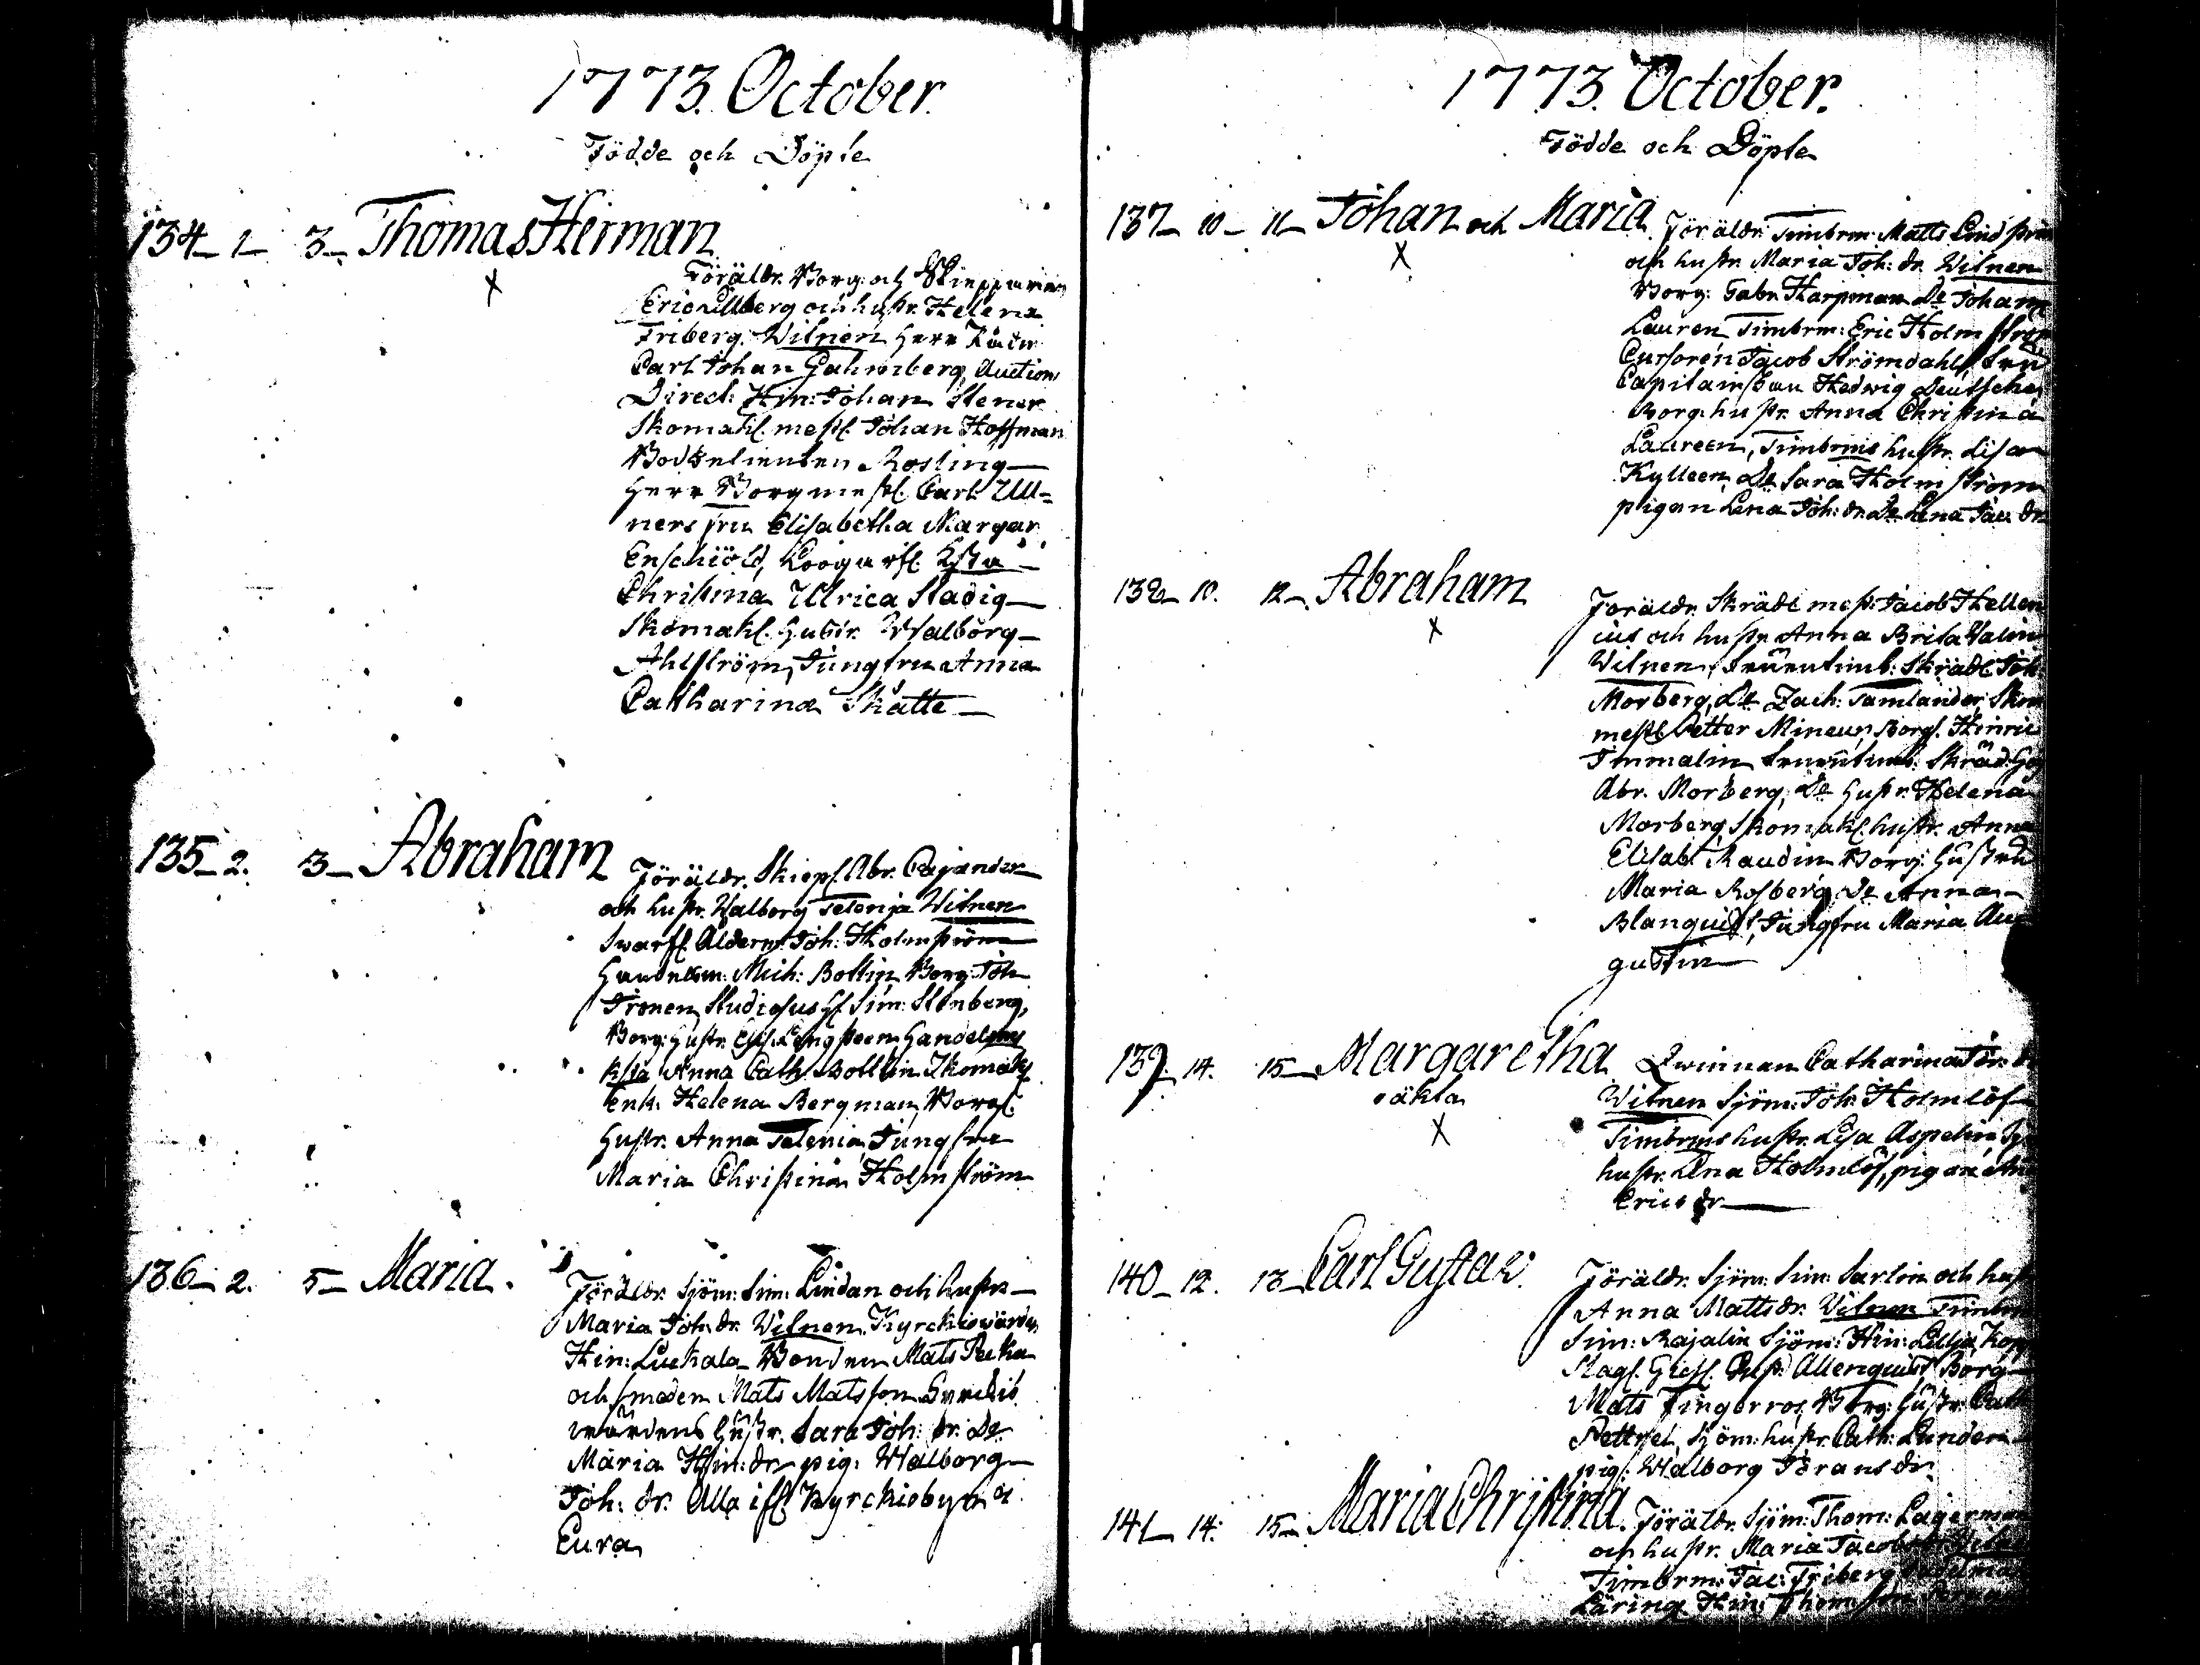 1773. October.
Födde och Döpte
134_ 1_ 3_ Thomas Herman
Föräldr. Borg. och Skepparen
Eric Ullberg och hustr. Helena
Friberg. Witnen Herr Rådm
Carl Johan Gahmberg, Auctions
Direct: Hin: Johan Stener
Skomak. mest. Johan Hoffman
Rosling
Herr Borgmest. Carl Ull=
ners fru Elisabetha Margar.
Enschiöld,
Christina Ulrica Stadig
Skomak. Hustr. Walborg
Ahlström, Jungfru Anna
Catharina Skatte
135_ 2. 3_ Abraham
Föräldr. Skepp. Abr. Cajander
och hustr. Walborg Telenia Witnen
Swarf.Ålderm. Joh: Holmström
Handelsm: Mich: Bottin, Borg: Joh
Tronen, Studiosus H. Sim: Stenberg,
Borg: Hustr. Elis. Långsteen, Handelsm
Anna Cath. Bottin, Skomak.
Enk: Helena Bergman, Borg.
Hustr. Anna Telenia, Jungfru
Maria Christina Holmström
136_ 2. 5_ Maria.
Föräldr. Sjöm: Sim: Lindan och hustr
Maria Joh: dr. Witnen. Kyrckiowärden
Hin: Luckala Bonden Mats Pecka
och smeden Mats Matsson
wärdens Hustr. Sara Joh: dr. Do
Maria Hin: dr pig: Walborg
Joh: dr. Alla if. Kyrckiobyn i
Eura
1773. October.
Födde och Döpte
137_ 10_ 11_ Johan och Maria
Föräldr. Timbrm: Matts Lindström
och hustr. Maria Joh: dr. Witnen
Borg: Gabr. Harpman Do Johan
Lauren Timbrm: Eric Holmström
Cursoren Jacob Strömdahl, Fru
Capitainskan Hedwig Deutscher
Borg: hustr. Anna Christina
Laureen, Timbrms hustr. Lisa
Kylleen, Do Sara Holmström
pigan Lena Joh: dr. Do Lena Jac: dr
138_ 10. 12_ Abraham
Föräldr. Skräd. mest: Jacob Hellen
ius och hustr. Anna Brita Walin
Witnen, Skräd. Joh
Morberg, Do Zach: Tamlander, Skom
mest. Petter Mineur, Borg. Hinric
Immalin Skräd. Ges
Abr. Morberg, Do Hustr. Helena
Morberg, Skomak. hustr. Anna
Elisab. Raudin Borg: Hustru
Maria Rosberg, Do Anna
Blanquist, Jungfru Maria Au
gustin
139_ 14. 15_ Margaretha
oäkta
Qwinnan Catharina
Witnen Sjöm: Joh: Holmlöf
Timbrms hustr. Lisa Aspelin
hustr. Lena Holmlöf, pigan
Erics dr
140_ 12. 13_ Carl Gustaw.
Föräldr. Sjöm: Sim: Sarlin och hustr
Anna Matts dr. Witnen Timbrm
Sim: Rajalin Sjöm: Hin: Lillja Kopp
Slag. Ges. Allenquist Borg
Mats Fingerroos, Borg: Hustr. Cath
Pettrel, Sjöm: hustr. Cath: Lunden
pig. Walborg Jörans dr.
141_ 14. 15_ Maria Christina.
Föräldr. Sjöm: Thom: Lagerman
och hustr. Maria Jacobs dr. Witnen
Timbrm: Jac: Friberg
Läring Hin: Thom